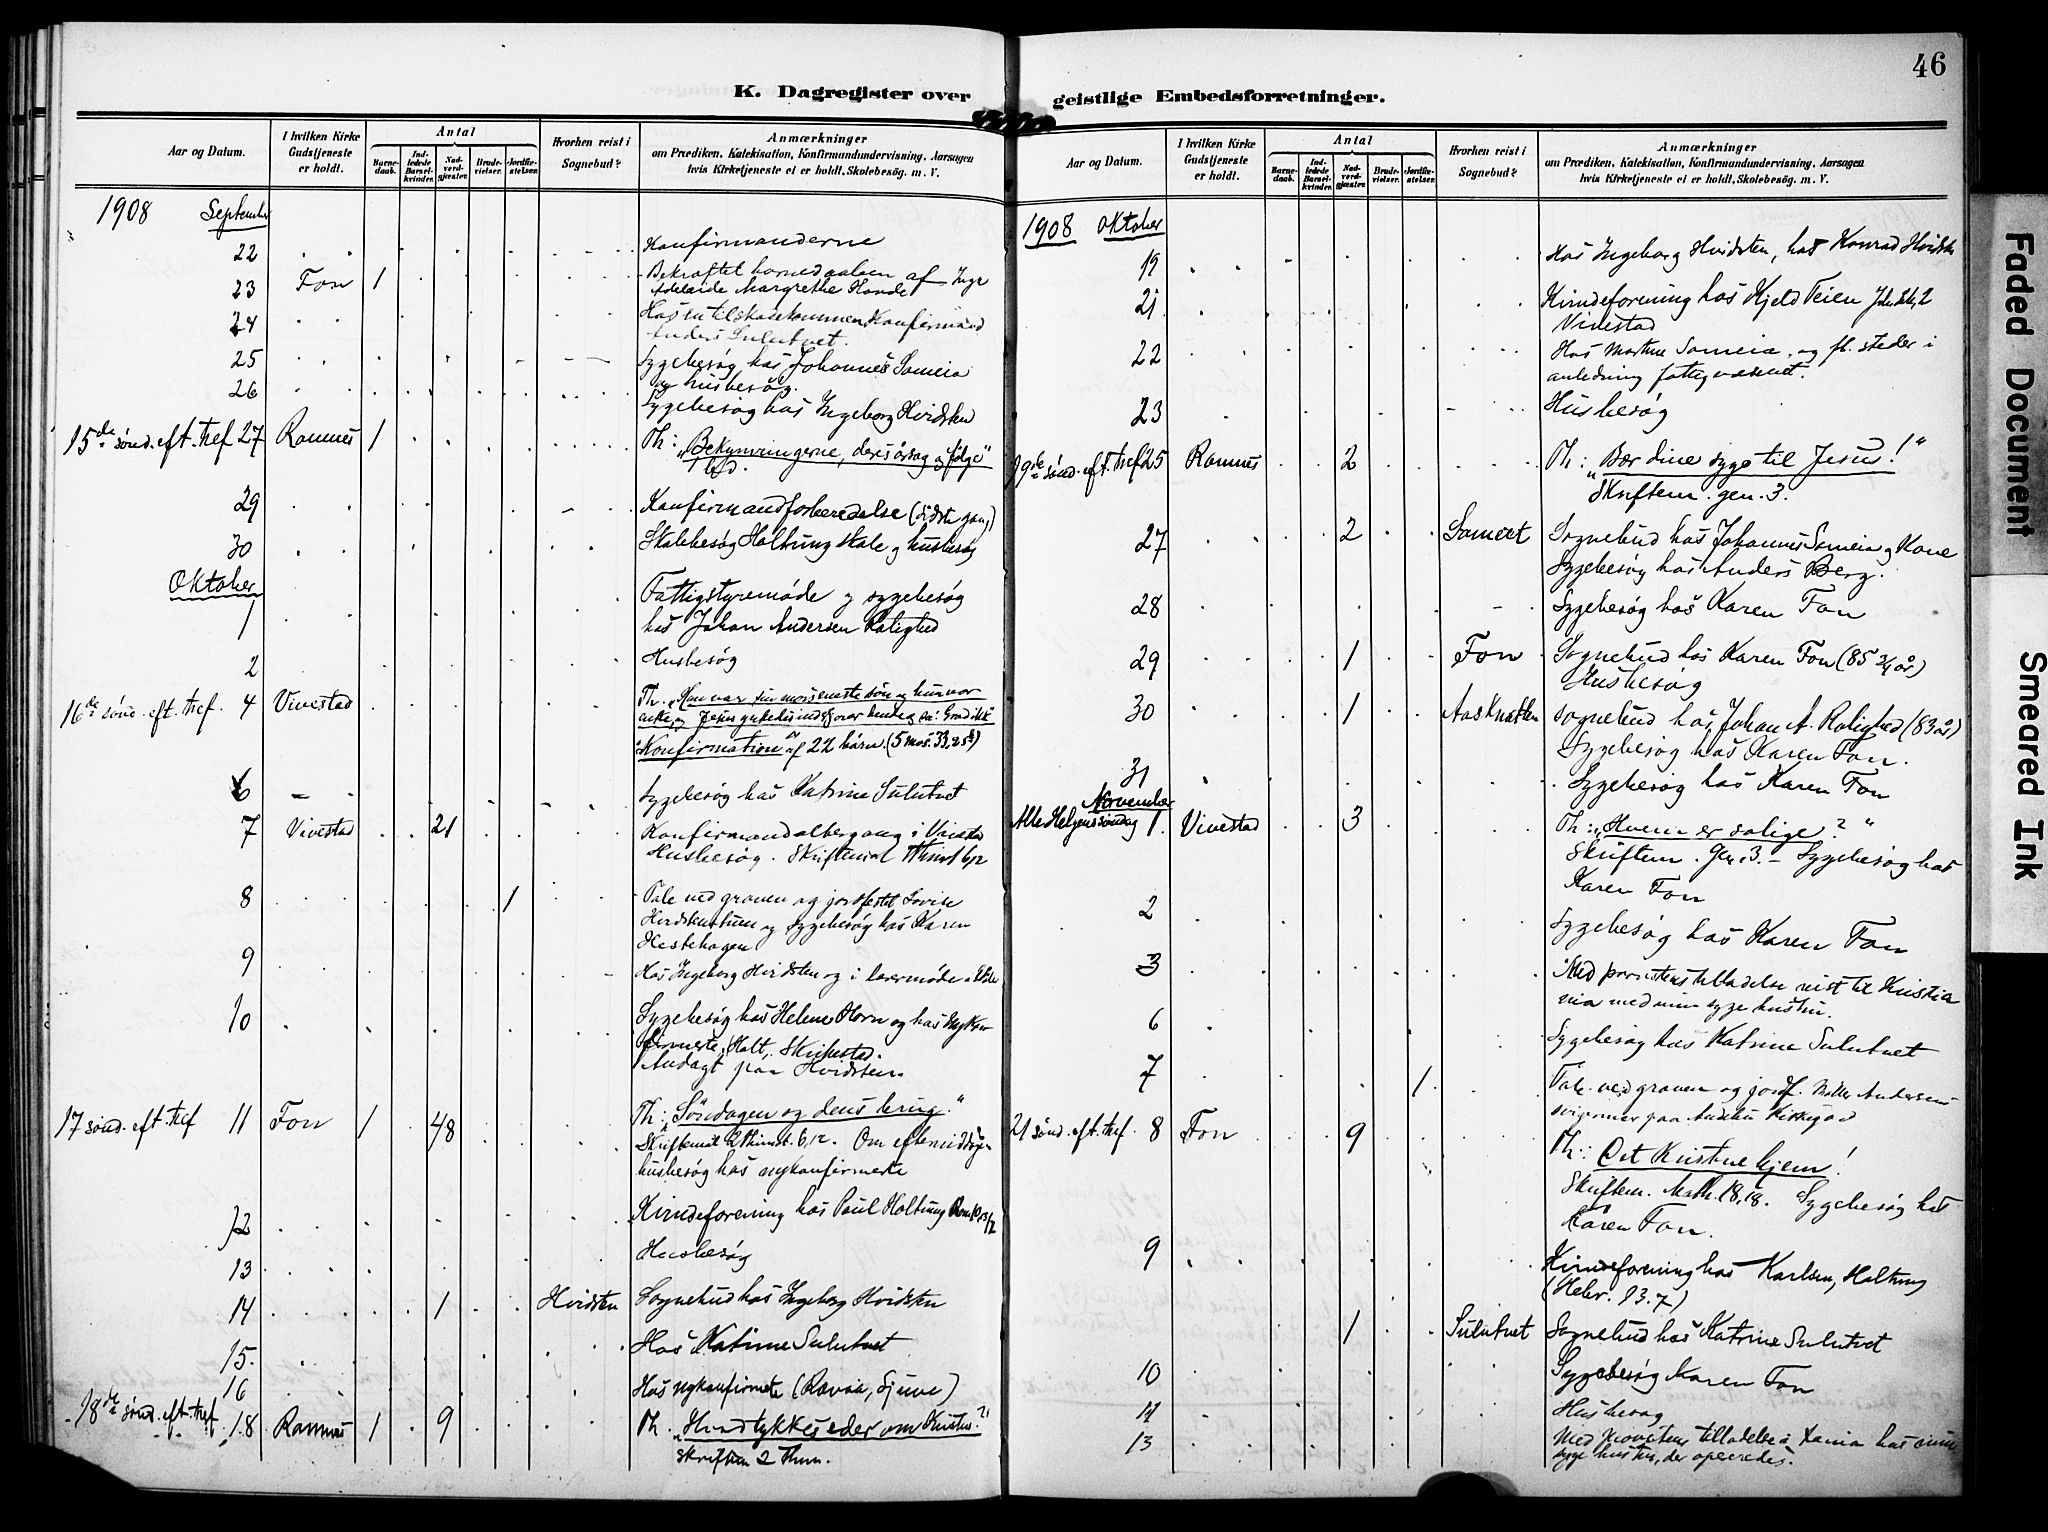 46
K. Dagregister over geistlige Embedsforretninger.
Aar og Datum.
I hvilken Kirke Gudstjeneste er holdt.
Antal
Barnedaab.
Indledede Barselkvinder.
Nadverdgjester.
Brudevielser.
Jordfæstelser.
Hvorhen reist i Sognebud?
Anmærkninger
om Prædiken, Katekisation, Konfirmandundervisning, Aarsagen
hvis Kirketjeneste ei er holdt, Skolebesøg. m. V.
1908 September
22 Konfirmanderne
23 Fon 1 Bekræftet barnedaaben af Inge
Adelaide Margrethe Hande
24 Hos en tilskadekommen Konfirmand
Anders Sulutvet.
25 Sygebesøg hos Johannes Someia
og husbesøg.
26 Sygebesøg hos Ingeborg Hvidsten
15de sønd. eft. tref 27 Ramnes 1 Th: „Bekymringerne, deres årsag og følge"
29 Konfirmandforberedelse (sidste gang)
30 Skolebesøg Holtung skole og husbesøg
Oktober
1 Fattigstyremøde og sygebesøg
hos Johan Andersen Rolighed
2 Husbesøg
16de sønd. eft. tref. 4 Vivestad Th. „Han var sin mors eneste søn og hun var
enke, og Jesus ynkedes inderlig over hende
Konfirmation af 22 børn. (5 Mos. 33,25)
6 Sygebesøg hos Katrine Sulutvet
7 Vivestad 21 Konfirmandaltergang i Vivestad
Husbesøg. Skriftemål 1 Thim 6,12
8 1 Tale ved graven og jordfestet Lovise
og sygebesøg hos Karen
Hestehagen
9 Hos Ingeborg Hvidsten og i lærermøde
10 Sygebesøg hos Helene Horn og hos nykon
firmerte, Holt, Skikestad.
Andagt paa Hvidsten.
17 sønd. eft. tref 11 Fon 1 48 Th: „Søndagen og dens brug."
Skriftemål 1 Thimot. 6,12. Om eftermiddagen
husbesøg hos nykonfirmerte
12 Kvindeforening hos Paul Holtung Rom 10,13/12
13 Husbesøg
14 1 Hvidsten Sognebud hos Ingeborg Hvidsten
15. Hos Katrine Sulutvet
16 Hos nykonfirmerte (Ravaa, Sjuve)
18de sønd. eft. tref. 18 Ramnes 1 9 Th. „Hvad tykkes eder om Kristus?"
Skriftem 2 Thim.
K. Dagregister over geistlige Embedsforretninger.
Aar og Datum.
I hvilken Kirke Gudstjeneste er holdt.
Antal
Barnedaab.
Indledede Barselkvinder.
Nadverdgjester.
Brudevielser.
Jordfæstelser.
Hvorhen reist i Sognebud?
Anmærkninger
om Prædiken, Katekisation, Konfirmandundervisning, Aarsagen
hvis Kirketjeneste ei er holdt, Skolebesøg. m. V.
1908 Oktober
19 Hos Ingeborg Hvidsten, hos Konrad Hvidsten
21 Kvindeforening hos Kjeld Teien
Vivestad
22 Hos Martine Someia og fl. steder i
anledning fattigvæsenet.
23 Husbesøg
19de sønd. eft. tref 25 Ramnes 2 Th: „Bær dine syge til Jesus!"
Skriftem. gen. 3.
27 2 Someet Sognebud hos Johannes Someia og Kone
Sygebesøg hos Anders Berg.
28 Sygebesøg hos Karen Fon
29 1 Fon Sognebud hos Karen Fon (85 3/4 år)
Husbesøg
30 1 Aasknatten Sognebud hos Johan A. Rolighed (83 år)
Sygebesøg hos Karen Fon.
31 Sygebesøg hos Karen Fon
November
Alle Helgens søndag 1. Vivestad 3 Th: „Hvem er salige?"
Skriftem. Gen. 3. – Sygebesøg hos
Karen Fon
2 Sygebesøg hos Karen Fon
3 Med provstens tilladelse reist til Kristia
nia med min syge hustru.
6 Sygebesøg hos Katrine Sulutvet
7 1 Tale ved graven og jordf. Andersens
paa Kirkegaard
21 sønd. eft. tref. 8 Fon 9 Th: Det Kristne hjem!
Skriftem. Math. 18,18. Sygebesøg hos
Karen Fon.
9 Kvindeforening hos Karlsen, Holtung
(Hebr. 13.7)
1 Sulutvet Sognebud hos Katrine Sulutvet
10 Sygebesøg Karen Fon
11 Husbesøg
13 Med Provstens tilladelse i Xania hos min
syge hustru, der opereredes.
Faded Document
Smeared Ink